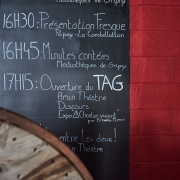 Médiathèques de Grigny
16H30: Présentation Fresque
Papay - La Constellation
16H45: Minutes contées
Médiathèques de Grigny
17H15: Ouverture du TAG
Amin Théâtre
Discours
Expo
entre Les deux!
Théâtre